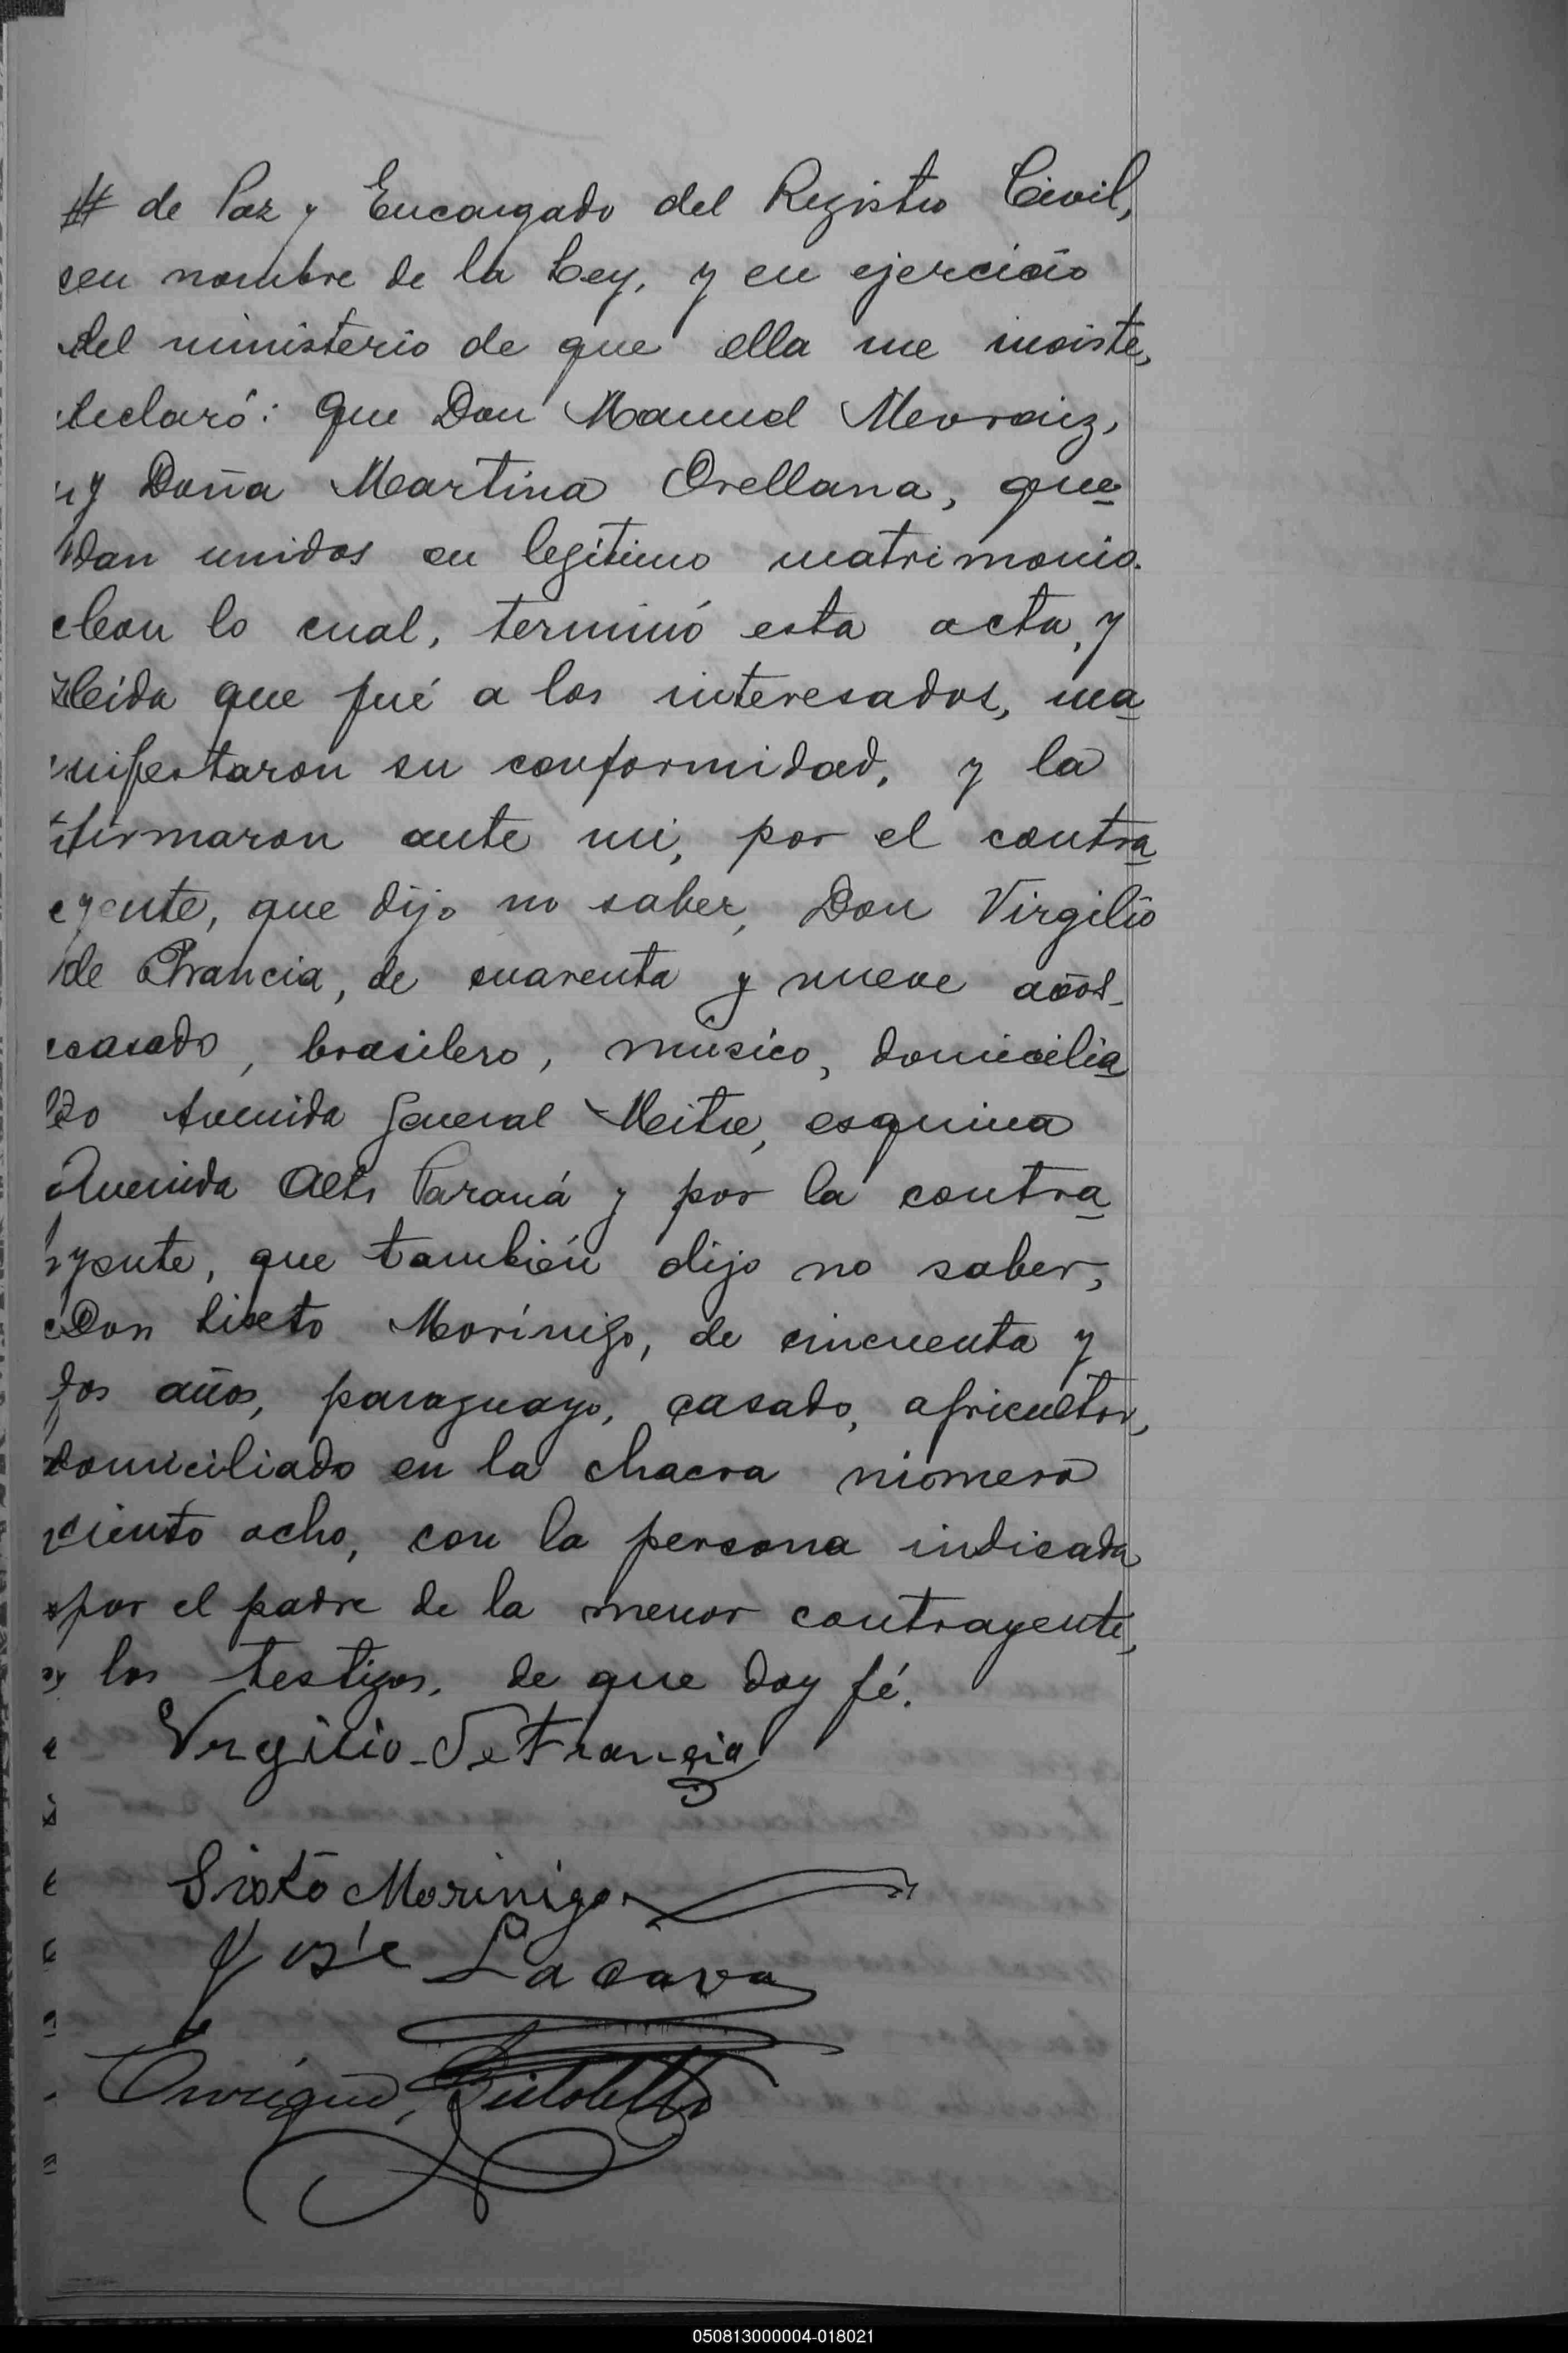 # de Paz y Encargado del Registro Civil,
en nombre de la Ley, y en ejercicio
del ministerio de que ella me inviste,
declaró: Que Don Manuel
y Doña Martina Orellana, que
dan unidos en legítimo matrimonio.
Con lo cual, terminó esta acta, y
leída que fué a los interesados, ma
nifestaron su conformidad, y la
firmaron ante mi, por el contra
yente, que dijo no saber, Don Virgilio
de Francia, de cuarenta y nueve años
casado, brasilero, músico, domicilia
do Avenida General Mitre, esquina
Avenida Alto Paraná y por la contra
yente, que también dijo no saber,
Don Sixto Morínigo, de cincuenta y
dos años, paraguayo, casado, agricultor,
domiciliado en la chacra número
ciento ocho, con la persona indicada
por el padre de la menor contrayente,
y los testigos, de que doy fé.
Virgilio de Francia
Sixto Morinigo
José Lacava
Enrique
050813000004-018021